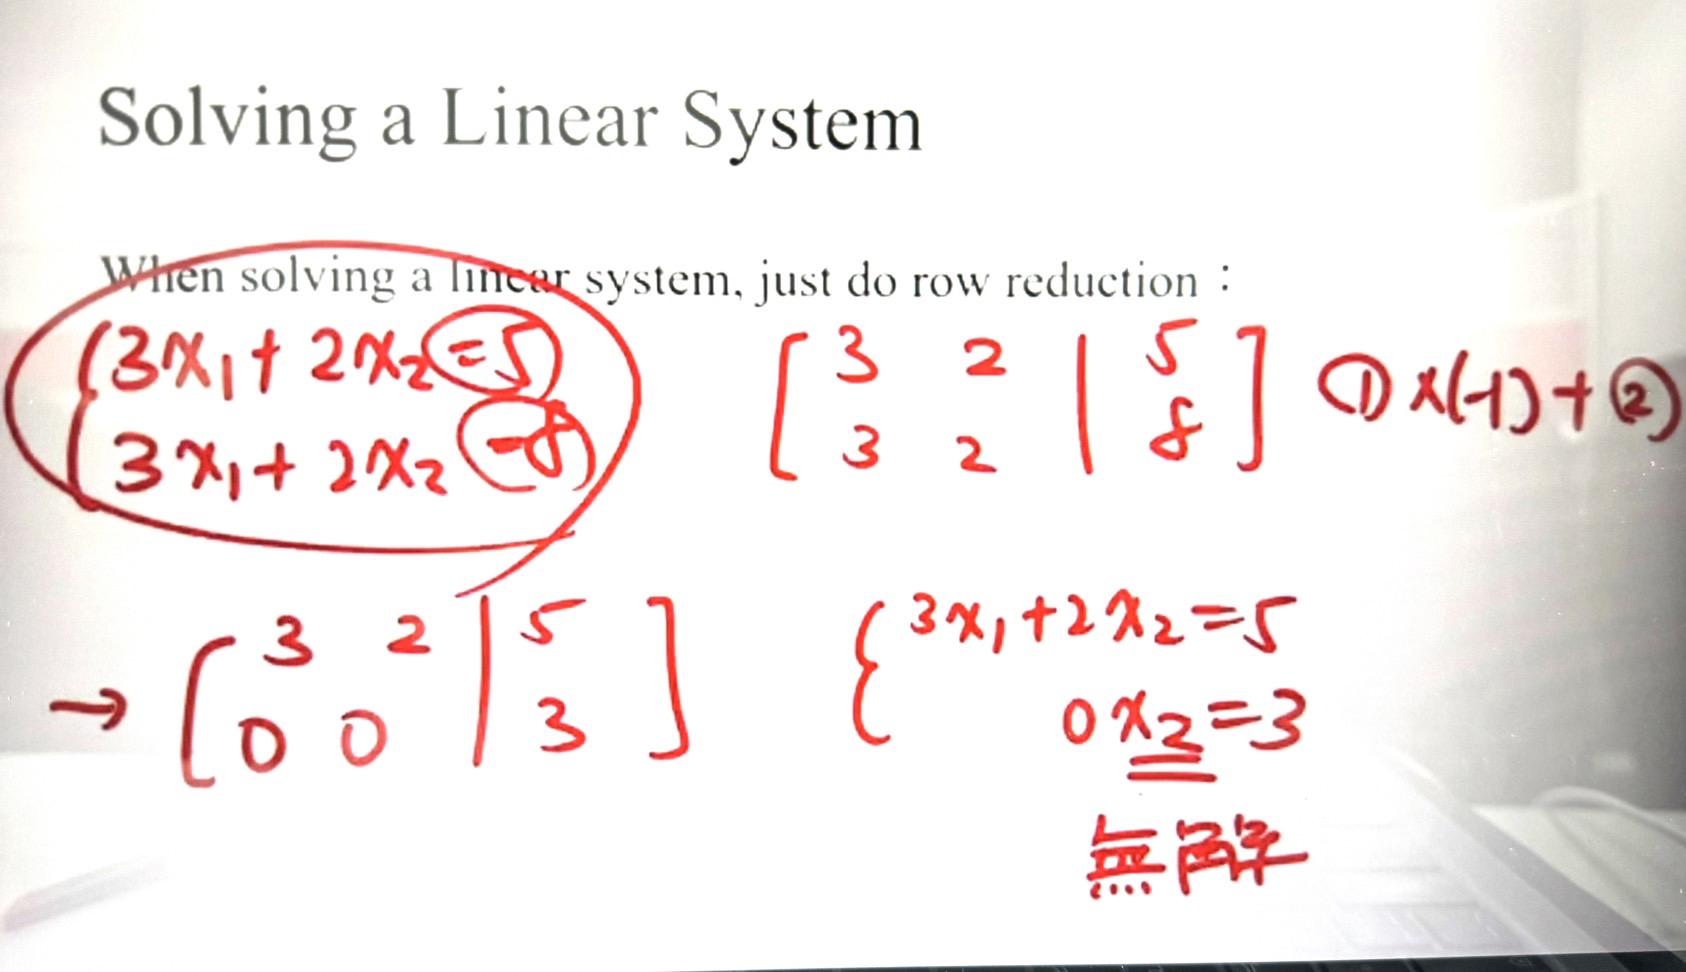 Solving a Linear System
When solving a linear system, just do row reduction：
{3x₁+2x₂=5
3x₁+2x₂=8
[3 2 | 5
3 2 | 8] ①×(-1)+②
→ [3 2 | 5
0 0 | 3]
{3x₁+2x₂=5
0x₂=3
無解